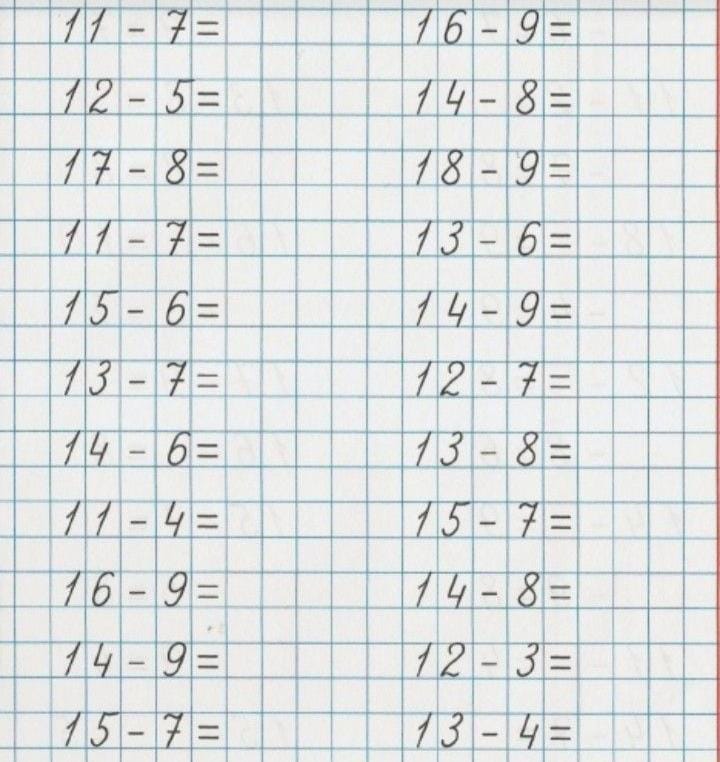 11 - 7 = 16 - 9 =
12 - 5 = 14 - 8 =
17 - 8 = 18 - 9 =
11 - 7 = 13 - 6 =
15 - 6 = 14 - 9 =
13 - 7 = 12 - 7 =
14 - 6 = 13 - 8 =
11 - 4 = 15 - 7 =
16 - 9 = 14 - 8 =
14 - 9 = 12 - 3 =
15 - 7 = 13 - 4 =